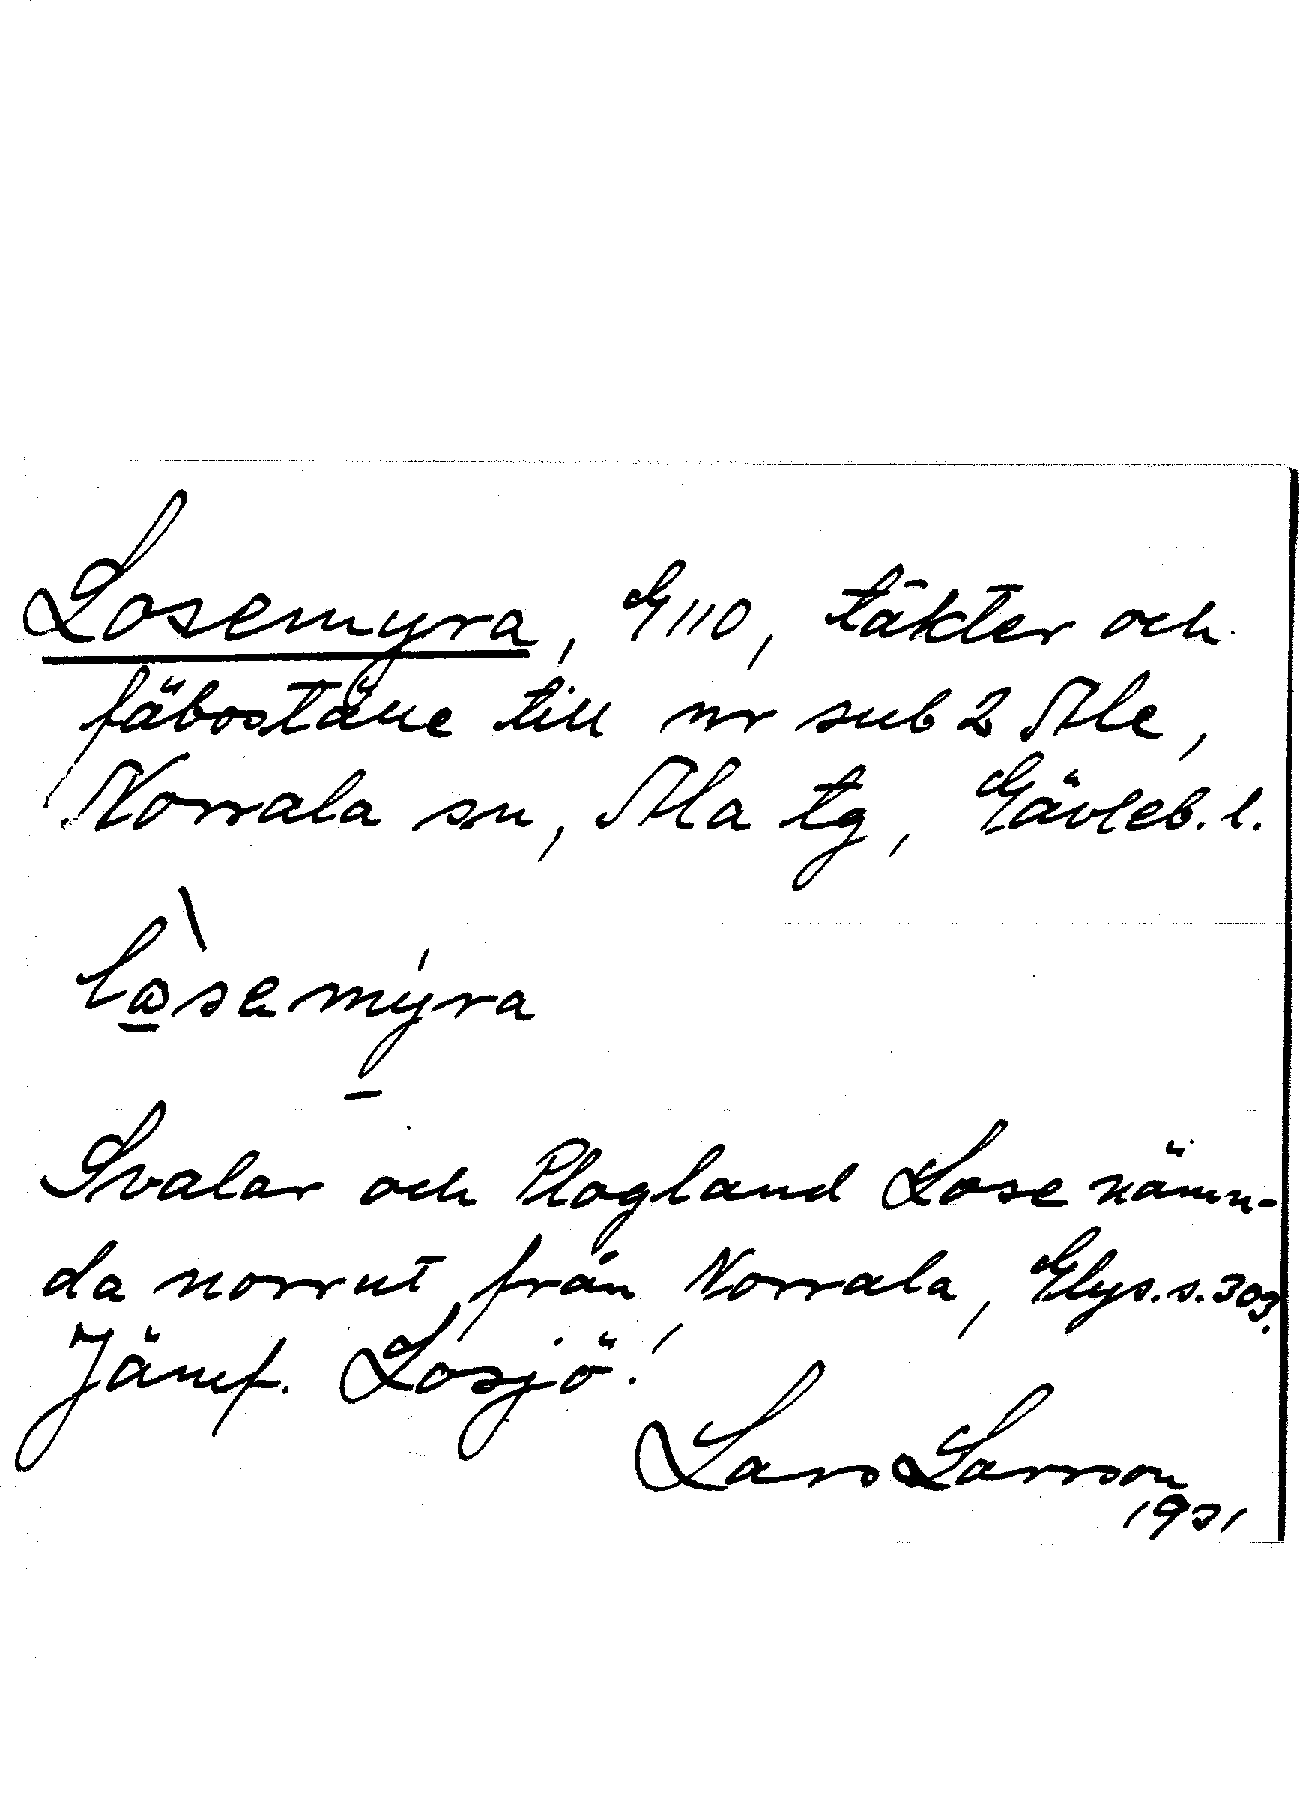 Losemyra, G110, täkter och
fäboställe till nr sub 2 Ale,
Norrala sn, Ala tg, Gävleb. l.
Svalar och Plogland Lose nämn-
da norrut från Norrala, Glys. s. 303.
Jämf. Losjö!
Lars Larsson
1931